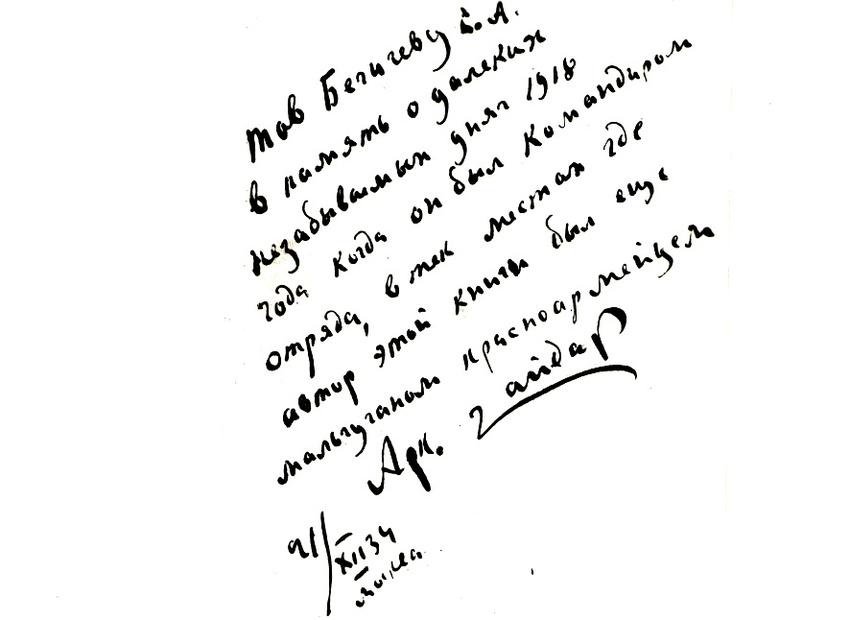 тов Бегичеву В. А.
в память о далеких
незабываемых днях 1918
года когда он был командиром
отряда, в тех местах где
автор этой книги был еще
мальчуганом красноармейцем
Арк. Гайдар
21/XII 34